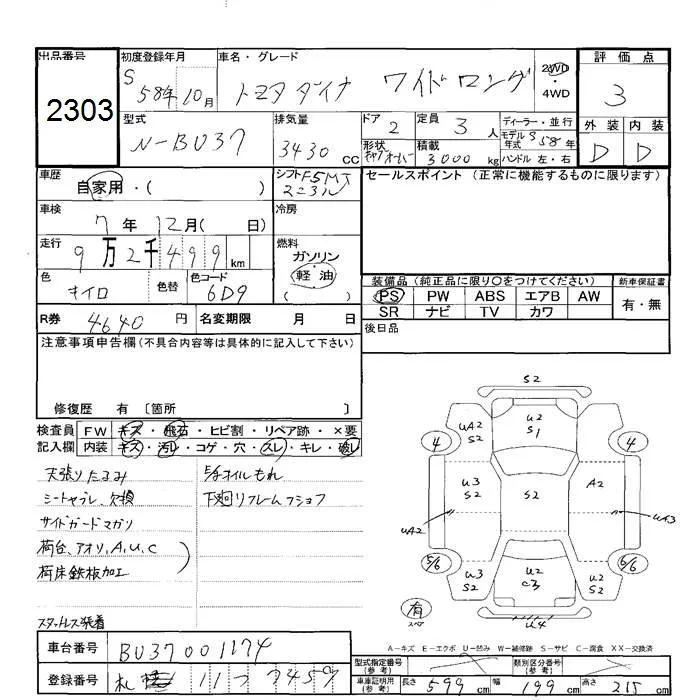 出品番号 初度登録年月 車名・グレード 2WD・4WD 評価点
2303 S 58年 10月 トヨタ ダイナ ワイドロング 3
型式 N-BU37 排気量 3430 CC ドア 2 定員 3 人 ディーラー・並行 モデル年式 S58年 外装 内装
形状 積載 3000 kg ハンドル 左・右 D D
車歴 自家用・( ) シフト F5MT セールスポイント (正常に機能するものに限ります)
車検 7年 12月 ( 日) 冷房
走行 9万2千499 km 燃料 ガソリン 軽油 ( )
色 キイロ 色替 色コード 6D9
装備品 (純正品に限り○をつけてください) 新車保証書
PS PW ABS エアB AW 有・無
SR ナビ TV カワ
R券 4640 円 名変期限 月 日 後日品
注意事項申告欄 (不具合内容等は具体的に記入して下さい)
修復歴 有 〔箇所 〕
検査員 FW キズ・飛石・ヒビ割・リペア跡・×要
記入欄 内装 キズ・汚レ・コゲ・穴・スレ・キレ・破レ
天張りたるみ 5/オイルもれ
シートヤブレ、欠損 下廻りフレームフショク
サイドガードマガリ
荷台、アオリ、A,U,C
荷床鉄板加工
スタットレス装着
S2
UA2 S2 U2 S1
4 4
U3 S2 S2 A2
UA2 UA3
5/6 6/6
U3 S2 U2 C3 U2 S2
有 スペア U4
A－キズ E－エクボ U－凹み W－補修跡 S－サビ C－腐食 XX－交換済
車台番号 BU37 001174
登録番号 札幌 11
型式指定番号 (参考) 類別区分番号 (参考)
車庫証明用 (参考) 長さ 599 cm 幅 199 cm 高さ 215 cm